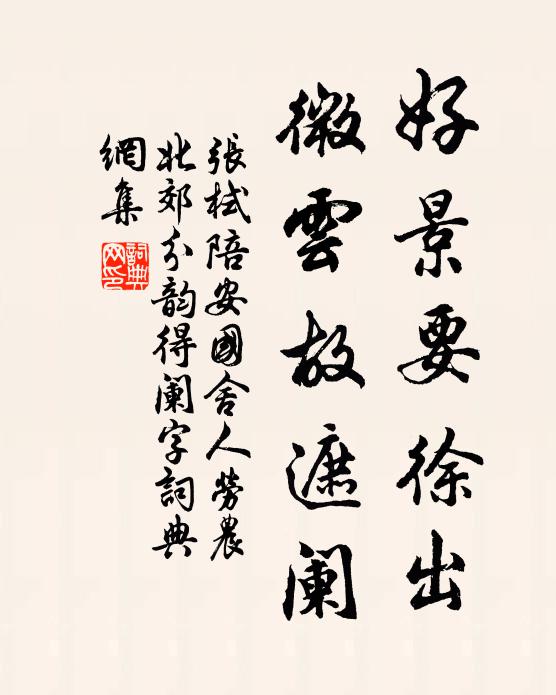 好景要徐出
微雲故遮阑
張栻陪安國舍人勞農
北郊分韵得阑字詞典
網集
詞典網印